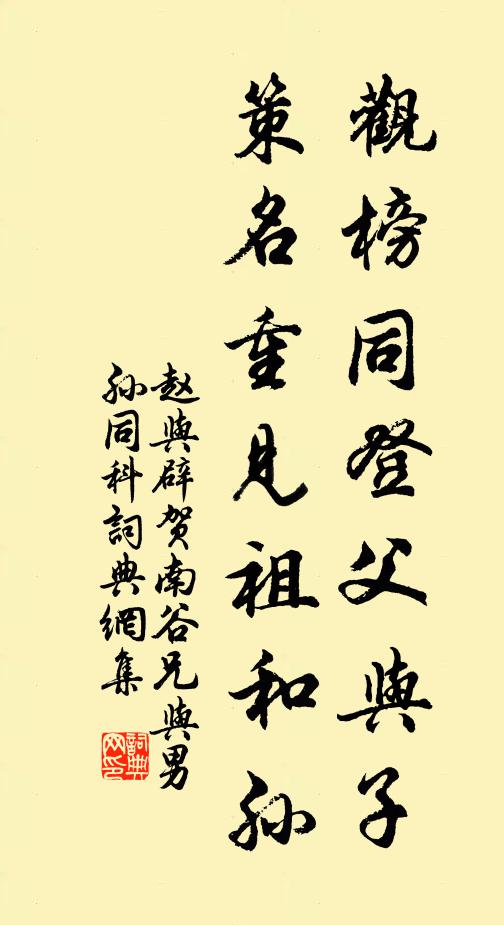 觀榜同登父與子
策名重見祖和孫
赵與辟贺南谷兄與男
孫同科詞典網集
詞典网印